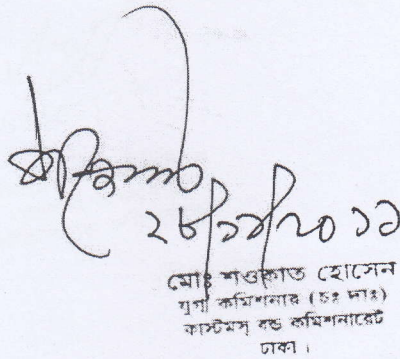 ২৮/১১/২০১১
মোঃ শওকাত হোসেন
যুগ্ম কমিশনার (চঃ দাঃ)
কাস্টমস্ বন্ড কমিশনারেট
ঢাকা।